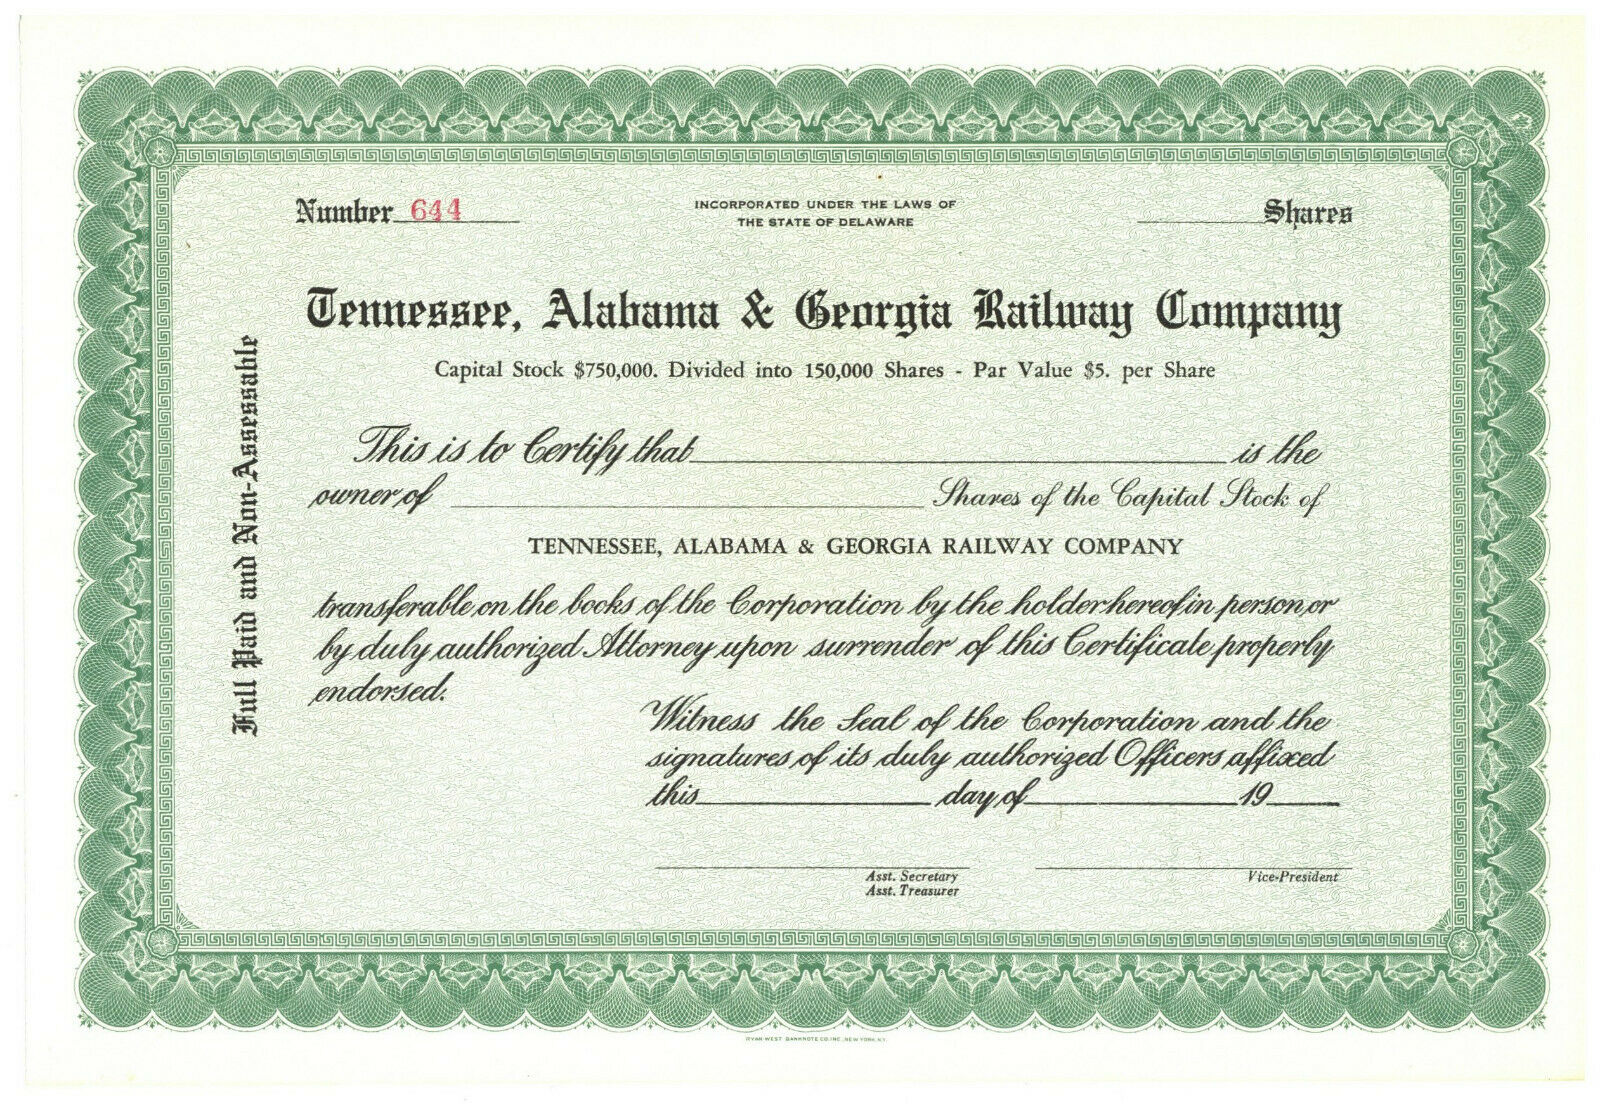 Number 644
INCORPORATED UNDER THE LAWS OF
THE STATE OF DELAWARE
Shares
Tennessee, Alabama & Georgia Railway Company
Capital Stock $750,000. Divided into 150,000 Shares - Par Value $5. per Share
Full Paid and Non-Assessable
This is to Certify that is the
owner of Shares of the Capital Stock of
TENNESSEE, ALABAMA & GEORGIA RAILWAY COMPANY
transferable on the books of the Corporation by the holder hereof in person or
by duly authorized Attorney upon surrender of this Certificate properly
endorsed.
Witness the Seal of the Corporation and the
signatures of its duly authorized Officers affixed
this day of 19
Asst. Secretary
Asst. Treasurer
Vice-President
RYAN WEST BANKNOTE CO. INC., NEW YORK, N.Y.